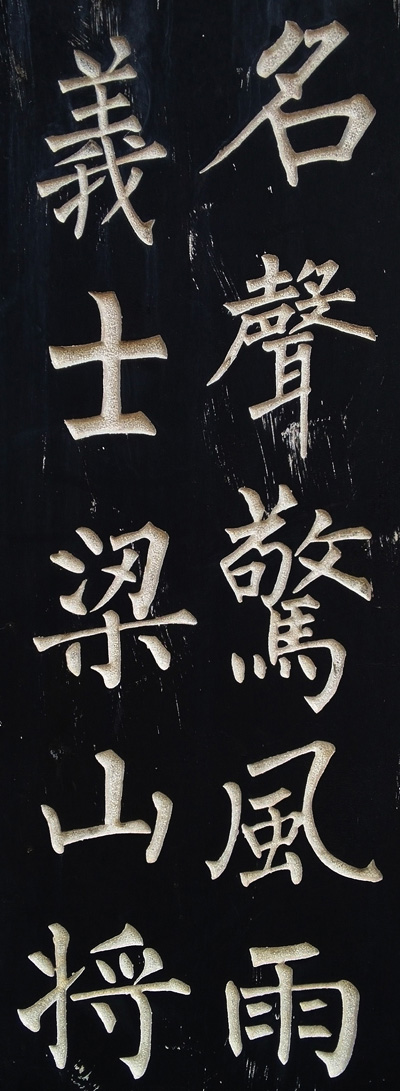 名聲驚風雨
義士梁山将